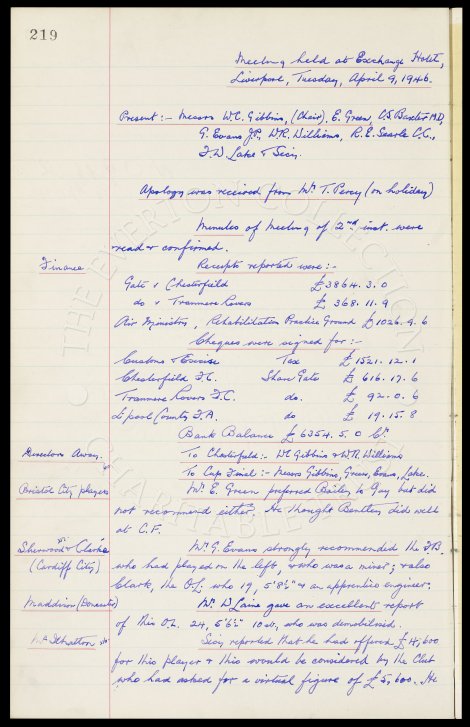 219
Meeting held at Exchange Hotel,
Liverpool, Tuesday, April 9, 1946.
Present :- Messrs W.C. Gibbins, (Chair), E. Green, C.S. Baxter M.D,
G. Evans J.P., W.R. Williams, R.E. Searle C.C.,
& Secy.
Apology was received from Mr. T. Percy (on holiday)
Minutes of Meeting of 2nd inst. were
read & confirmed.
Finance
Receipts reported were :-
Gate v Chesterfield £3864. 3. 0
do v Tranmere Rovers £ 368. 11. 9
Air Ministry, Rehabilitation Practice Ground £1026. 9. 6
Cheques were signed for :-
Customs & Excise Tax £ 1521. 12. 1
Chesterfield F.C. Share Gate £ 616. 17. 6
Tranmere Rovers F.C. do. £ 92. 0. 6
L'pool County F.A. do £ 19. 15. 8
Bank Balance £6354. 5. 0 Cr
Directors Away.
To Chesterfield :- WC Gibbins & WR Williams
To Cup Final :- Messrs Gibbins, Green, Evans, Lake.
Bristol City players
Mr. E. Green preferred Bailey to Guy but did
not recommend either. He thought Bentley did well
at C.F.
Sherwood & Clarke
(Cardiff City)
Mr. G. Evans strongly recommended the F.B.
who had played on the left, & who was a miner; & also
Clark, the O.L. who 19, 5'8½" & an apprentice engineer.
Maddison (Doncaster)
Mr. D Laine gave an excellent report
of this O.L. 24, 5'6½" 10 st, who was demobilised.
Secy reported that he had offered £4,600
for this player & this would be considered by the Club
who had asked for a virtual figure of £5,600. He
THE EVERTON COLLECTION
CHARITABLE